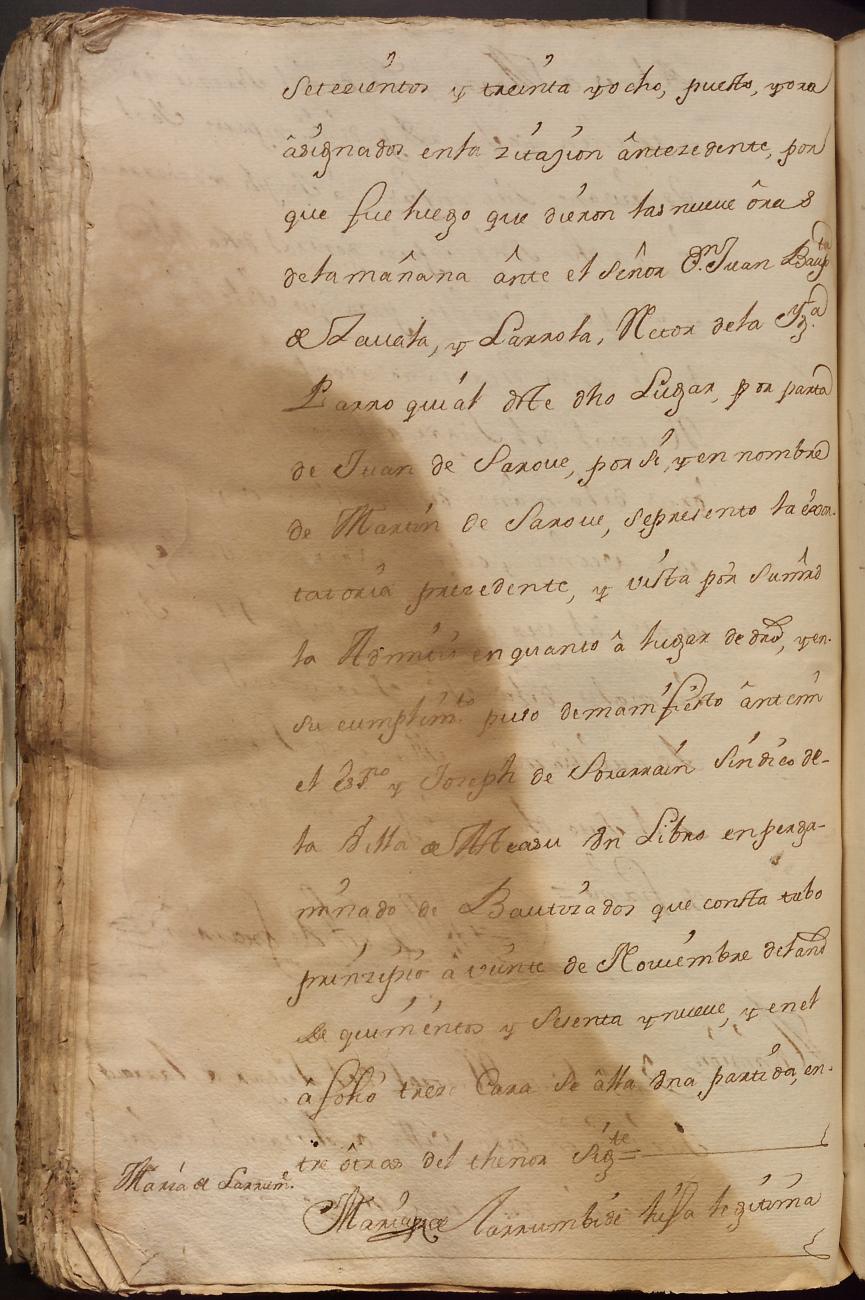 Setecientos y treinta y ocho, puesto, y ora
âsignados en la zitazion ântezedente, por
que fue luego que dieron las nueve ôras
de la mañana ânte el Señor Dn. Juan Baupta
de Zavala, y Larrola, Retor de la Ygla
Parroquiâl deste dho Lugar, por parte
de Juan de Saroue, por si, y en nombre
de Martin de Saroue, se presento la exor-
tatoria prezedente, y vista por su mrd
la Admitiô en quanto â lugar de dro, y en
su cumplimto puso de manifiesto ânte mi
el essno y Joseph de Sorarrain Sindico de-
la Villa de Aleasu vn Libro enperga-
minado de Bautizados que consta tubo
prinzipio â veinte de Noviembre del año
de quinientos y sesenta y nueve, y en el
â folio treze Cara se âlla vna partida, en-
tre ôtras del thenor Sigte=
Maria de Larrumve.
Maria de Larrumbide hija legitima